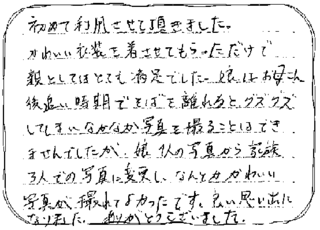 初めて利用させて頂きました。
かわいい衣装を着させてもらっただけで
親としてはとても満足でした。娘はお母さん
後追い時期でそばを離れるとグズグズ
してしまいなかなか写真を撮ることはでき
ませんでしたが、娘1人の写真から家族
3人での写真に変更し、なんとかかわいい
写真が撮れてよかったです。良い思い出に
なりました。ありがとうございました。